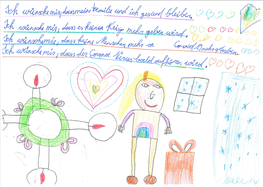 Ich wünsche mir, dass meine Familie und ich gesund bleiben.
Ich wünsche mir, dass es keinen Krieg mehr geben wird.
Ich wünsche mir, dass keine Menschen mehr an Corona
Ich wünsche mir, dass der Corona-Virus bald aufhören wird.